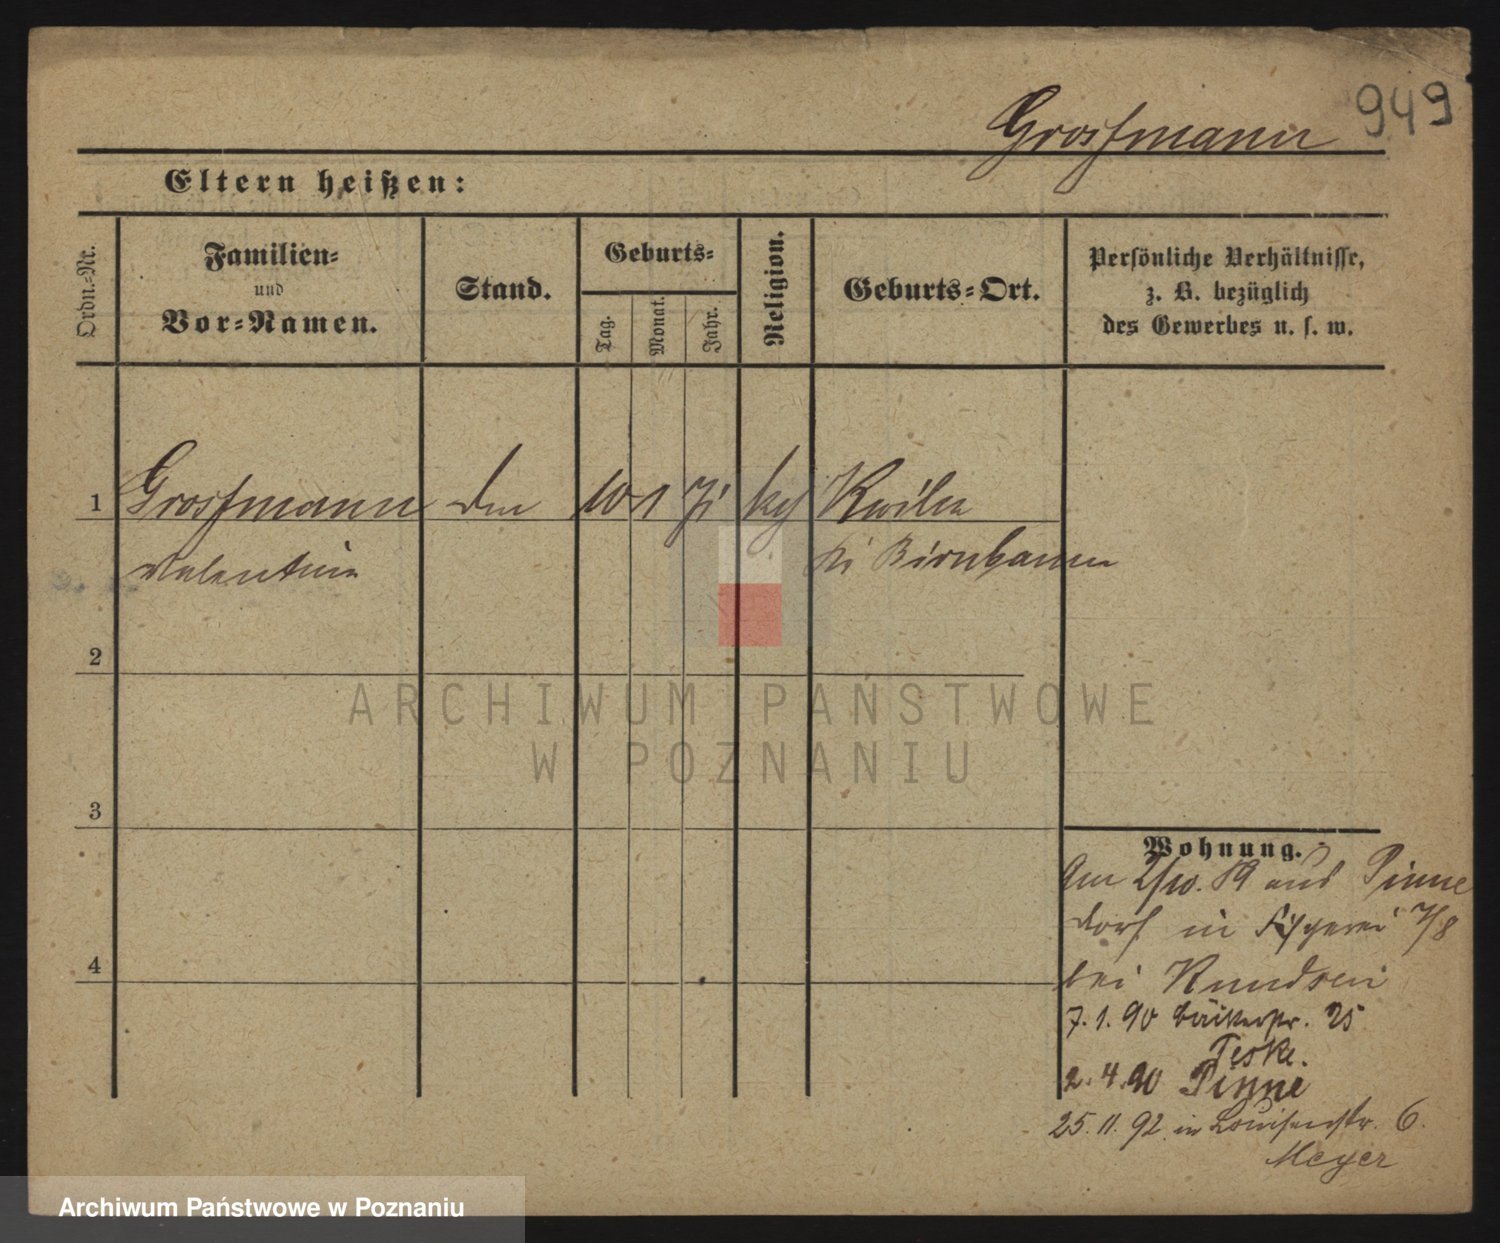 Grossmann 949
Eltern heißen:
Ordn.-Nr.
Familien-
und
Vor-Namen.
Stand.
Geburts-
Tag.
Monat.
Jahr.
Religion.
Geburts-Ort.
Persönliche Verhältnisse,
z. B. bezüglich
des Gewerbes u. s. w.
1 Grossmann 10 1 71 Kwilcz
Valentin bei Birnbaum
2
3
4
Wohnung.
Am 2/10. 89 aus Pinne
dorf in 7/8
bei Knudsen
7.1.90 Bäckerstr. 25
Teske.
2.4.90 Pinne
25.11.92 in Louisenstr. 6.
Meyer
ARCHIWUM PAŃSTWOWE
W POZNANIU
Archiwum Państwowe w Poznaniu